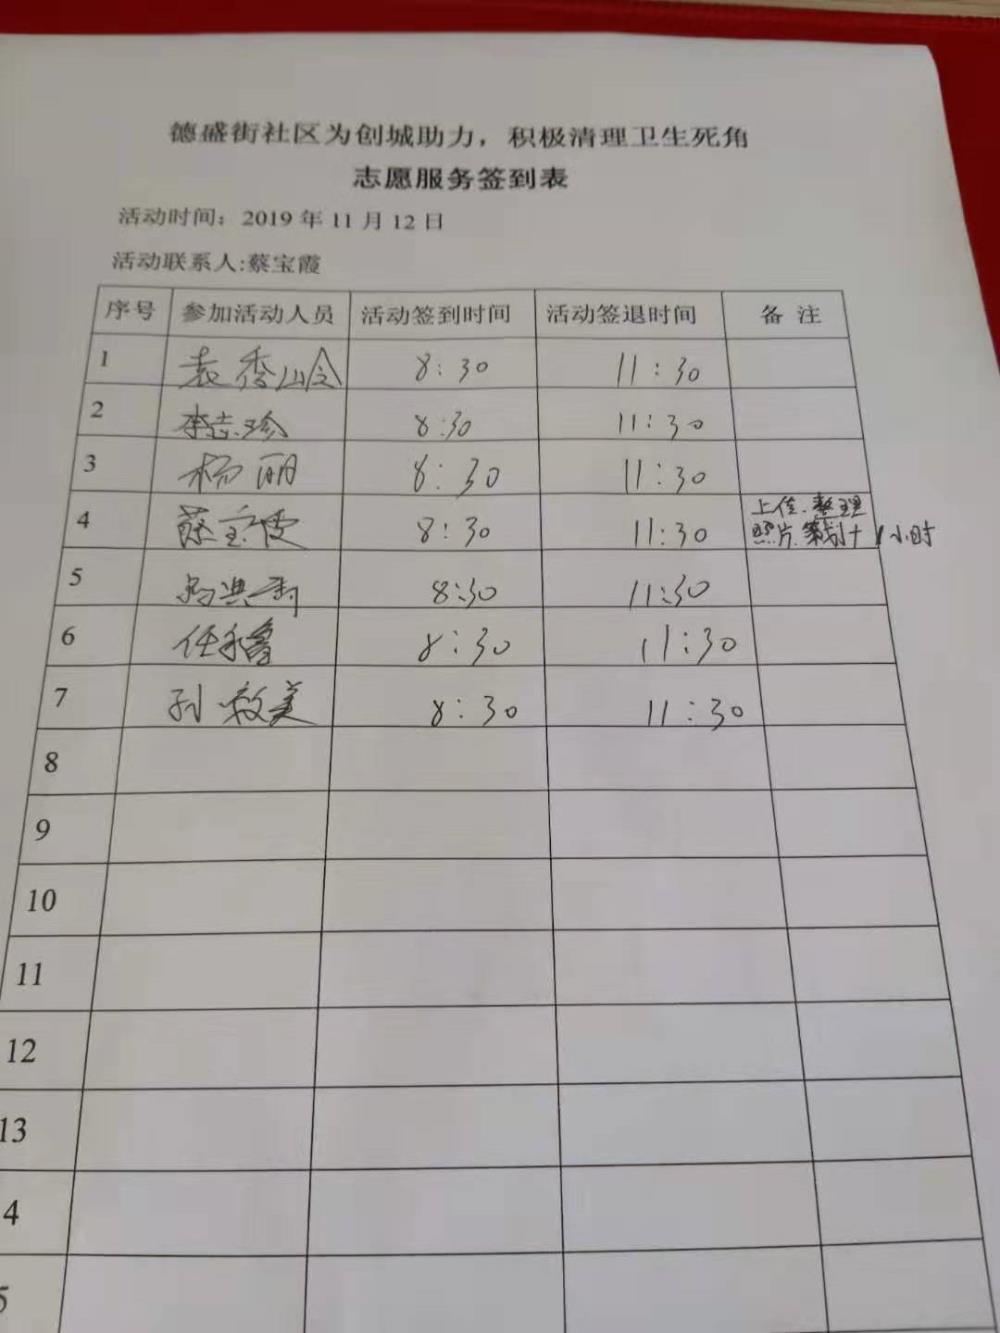 德盛街社区为创城助力，积极清理卫生死角
志愿服务签到表
活动时间：2019 年 11 月 12 日
活动联系人:蔡宝霞
序号 参加活动人员 活动签到时间 活动签退时间 备 注
1 袁秀岭 8:30 11:30
2 李志珍 8:30 11:30
3 杨丽 8:30 11:30
上传.整理
4 蔡宝霞 8:30 11:30
照片.策划+1小时
5 8:30 11:30
6 任永鑫 8:30 11:30
7 孙敬美 8:30 11:30
8
9
10
11
12
13
4
5